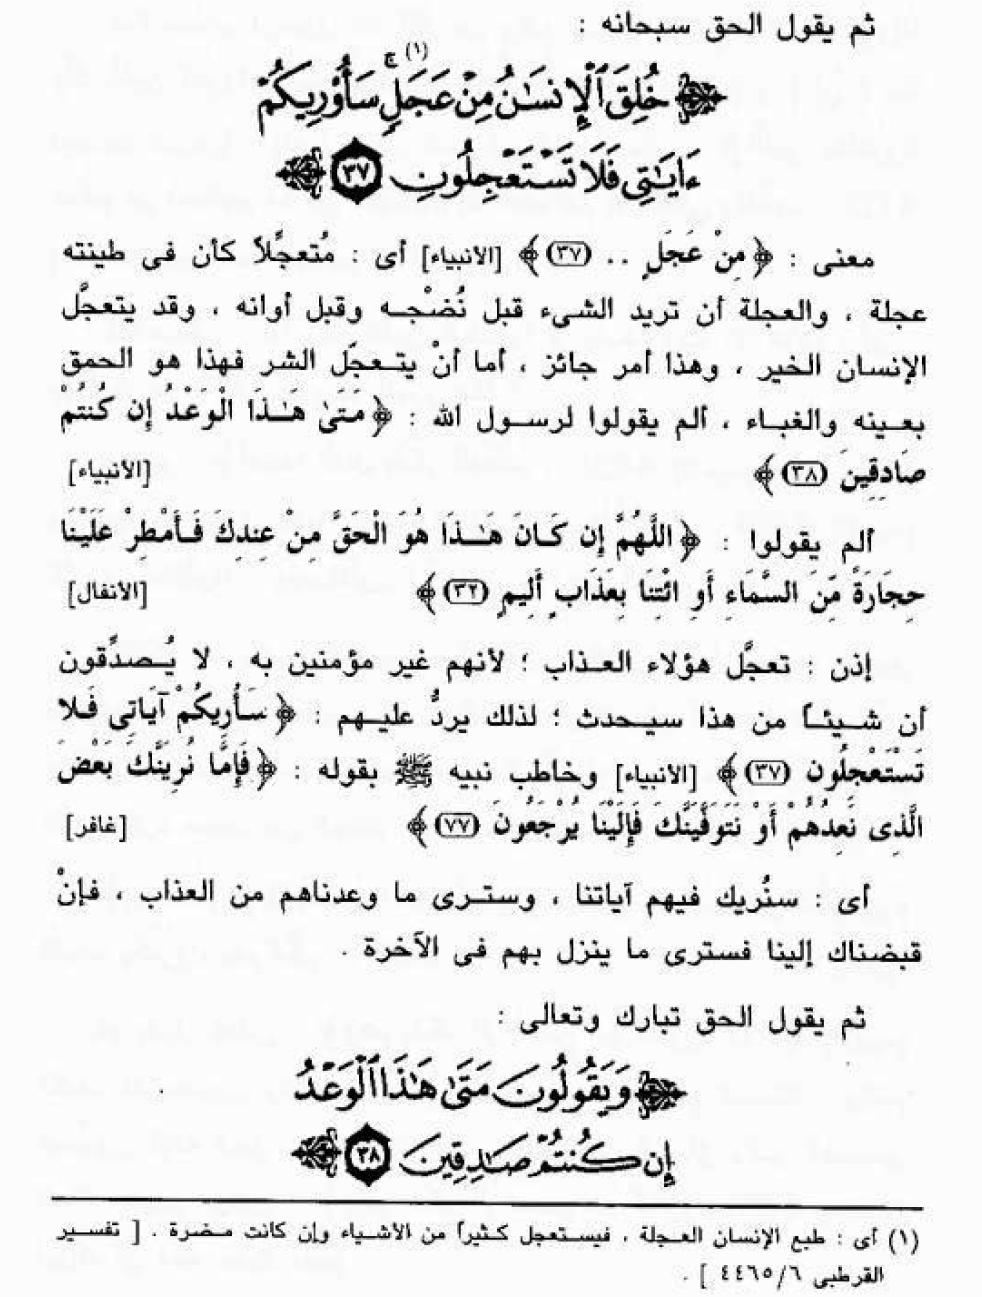 ثم يقول الحق سبحانه :
﴿ خُلِقَ ٱلْإِنسَـٰنُ مِنْ عَجَلٍ ۚ (١) سَأُوْرِيكُمْ
ءَايَـٰتِى فَلَا تَسْتَعْجِلُونِ ٣٧ ﴾
معنى : ﴿ مِنْ عَجَلٍ .. (٣٧) ﴾ [الأنبياء] أى : مُتعجِّلاً كأن فى طينته
عجلة ، والعجلة أن تريد الشىء قبل نُضْجـه وقبل أوانه ، وقد يتعجَّل
الإنسان الخير ، وهذا أمر جائز ، أما أنْ يتـعجَّل الشر فهذا هو الحمق
بعـينه والغبـاء ، ألم يقولوا لرسـول الله : ﴿ مَتَىٰ هَـٰذَا الْوَعْدُ إِن كُنتُمْ
صَادِقِينَ (٣٨) ﴾ [الأنبياء]
ألم يقولوا : ﴿ اللَّهُمَّ إِن كَـانَ هَـٰذَا هُوَ الْحَقَّ مِنْ عِندِكَ فَـأَمْطِرْ عَلَيْنَا
حِجَارَةً مِّنَ السَّمَاءِ أَوِ ائْتِنَا بِعَذَابٍ أَلِيمٍ (٣٢) ﴾ [الأنفال]
إذن : تعجَّل هؤلاء العـذاب ؛ لأنهم غير مؤمنين به ، لا يُـصدِّقون
أن شـيئـاً من هذا سيـحدث ؛ لذلك يردُّ عليـهم : ﴿ سَـأُرِيكُمْ آيَاتِى فَـلا
تَسْتَعْجِلُونِ (٣٧) ﴾ [الأنبياء] وخاطب نبيه ﷺ بقوله : ﴿ فَإِمَّا نُرِيَنَّكَ بَعْضَ
الَّذِى نَعِدُهُمْ أَوْ نَتَوَفَّيَنَّكَ فَإِلَيْنَا يُرْجَعُونَ (٧٧) ﴾ [غافر]
أى : سنُريك فيهم آياتنا ، وستـرى ما وعدناهم من العذاب ، فإنْ
قبضناك إلينا فسترى ما ينزل بهم فى الآخرة .
ثم يقول الحق تبارك وتعالى :
﴿ وَيَقُولُونَ مَتَىٰ هَـٰذَا ٱلْوَعْدُ
إِن كُنتُمْ صَـٰدِقِينَ ٣٨ ﴾
(١) أى : طبع الإنسان العـجلة ، فيسـتعجل كـثيراً من الأشياء وإن كانت مـضرة . [ تفسـير
القرطبى ٤٤٦٥/٦ ] .